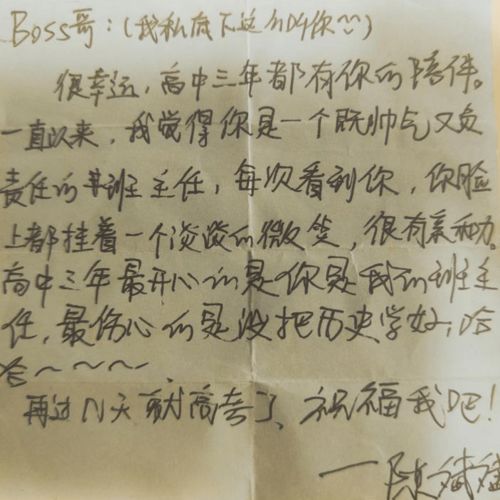 Boss哥：(我私底下这么叫你)
很幸运，高中三年都有你的陪伴。
一直以来，我觉得你是一个既帅气又负
责任的班主任，每次看到你，你脸
上都挂着一个淡淡的微笑，很有亲和力。
高中三年最开心的是你是我的班主
任，最伤心的是没把历史学好，哈
哈~~~~
再过N天就高考了、祝福我吧！
—陈斌斌